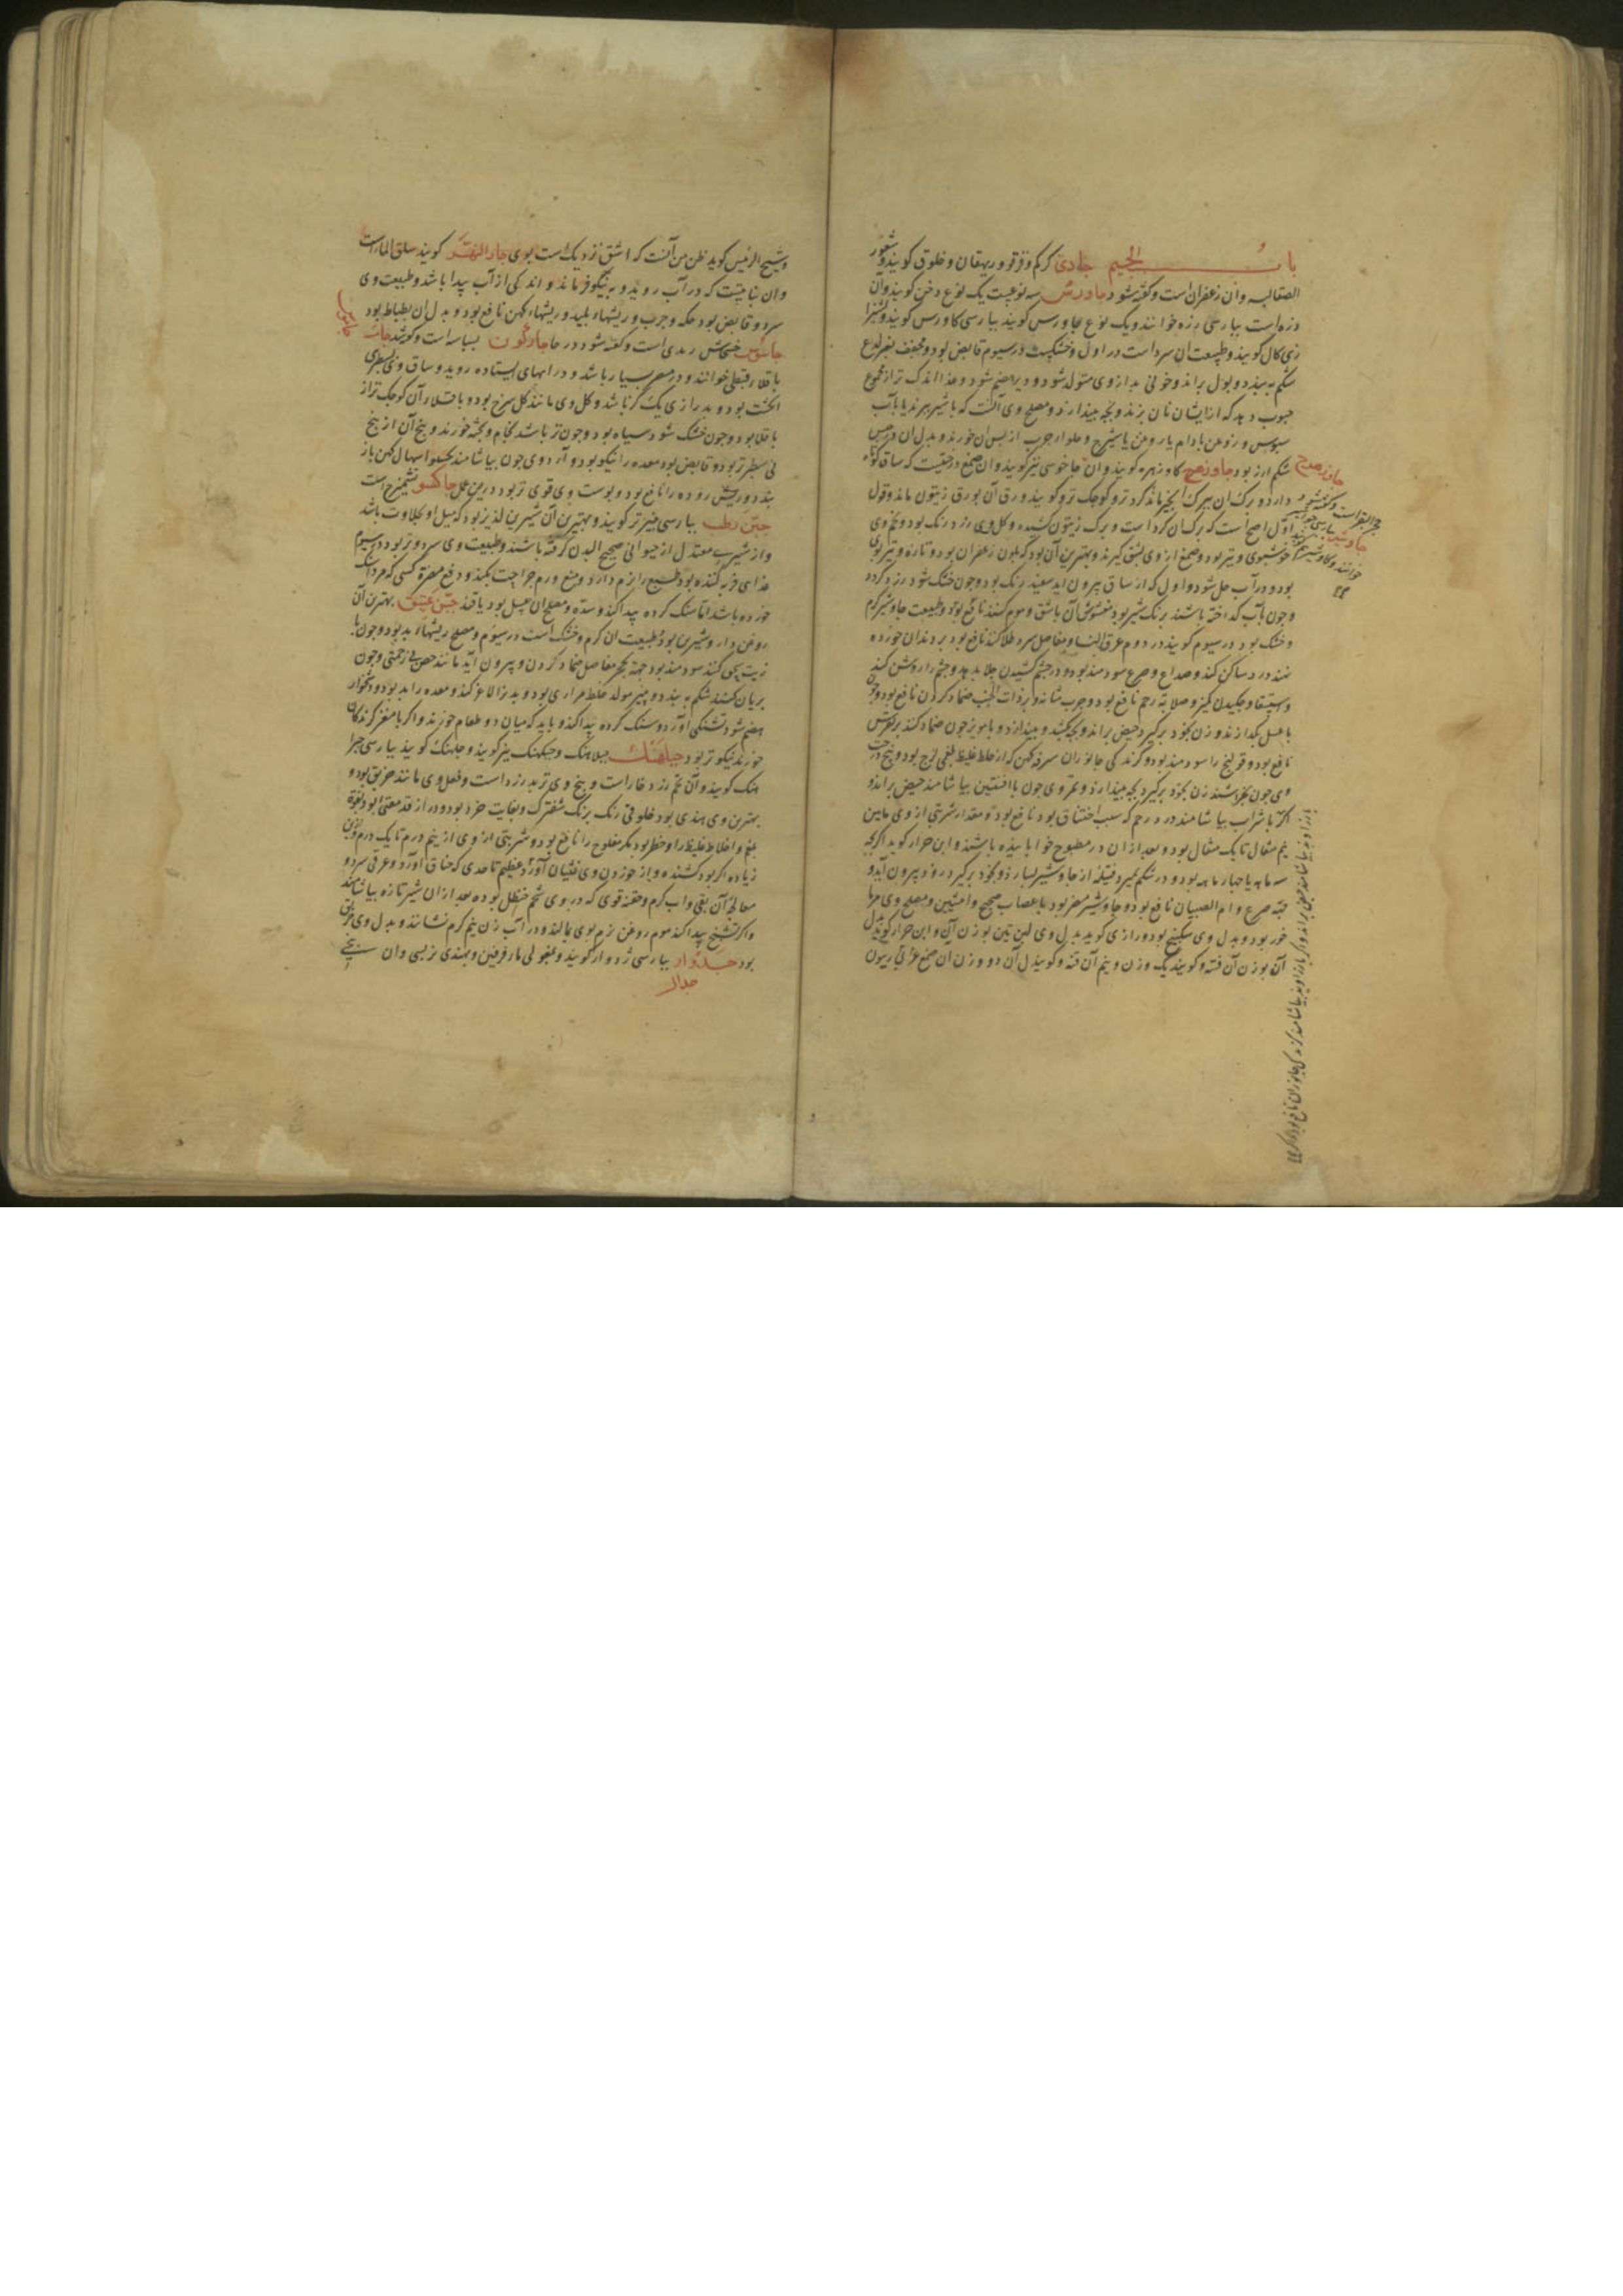 باب الجیم جادی کرکم و قرقو و ریهقان و خلوق کویند و شعور
الصقالبه و آن زعفران است و کفته شود جاورس سه نوعست یک نوع دخن کویند و آن
ارزه است بپارسی رزه خوانند و یک نوع جاورس کویند بپارسی کاورس کویند و شیرازی
ذری کال کویند و طبیعت آن سرد است در اول و خشکست در سیوم قابض بود و مجفف بغیر لدع
شکم ببندد و بول براند و خونی بد از وی متولد شود و دیر هضم شود و غذا اندک تر از مجموع
حبوب دهد که از ایشان نان پزند و بچه بیندازد و مصلح وی آنست که با شیر پزند یا با آب
سبوس و روغن بادام یا روغن یا شیرج و حلوا چرب از پس آن خورند و بدل آن در حبس
شکم ارز بود جاوزهرج کاوزهره کویند و آن جاخوسی نیز کویند و آن صمغ درختیست که ساق کوتاه
دارد و برک آن ببرک انجیر ماند کرد تر و کوچک تر و کویند ورق آن بورق زیتون ماند و قول
اول اصح است که برک آن کرد است و برک زیتون کشیده و کل وی زرد رنک بود و تخم وی
خوشبوی و تیز بود و صمغ از وی بشق کیرند و بهترین آن بود که بلون زعفران بود و تازه و تیزبوی
بود و در آب حل شود و اول که از ساق بیرون آید سفید رنک بود و چون خشک شود زرد کردد
و چون بآب کداخته باشند برنک شیر بود مغشوش آن باشق و موم کنند نافع بود و طبیعت جاوشیر کرم
و خشک بود در سیوم کویند در دوم عرق النسا و مفاصل سرد طلا کنند نافع بود بر دندان خورده
نهند درد ساکن کند و صداع و صرع سودمند بود و در چشم کشیدن جلا بدهد و چشم را روشن کند
و استسقا و چکیدن کمیز و صلابة رحم نافع بود و جرب مثانه و بر ذات الجنب ضماد کردن نافع بود و چون
با عسل بکدازند و زن بخود برکیرد حیض براند و بچه بکشد و بیندازد و با مویز چون ضماد کنند بر نقرس
نافع بود و قولنج را سودمند بود و کزندکی جانوران سرفه کهن که از خلط غلیظ بلغمی لزج بود و بیخ درخت
وی چون بخراشند زن بخود برکیرد بچه بیندازد و ثمر وی چون با افسنتین بیاشامند حیض براند و
اکر با شراب بیاشامند درد رحم که سبب اختناق بود نافع بود و مقدار شربتی از وی مابین
نیم مثقال تا یک مثقال بود و بعد از آن در مطبوخ خوابانیده باشند و ابن جزار کوید اکر بچه
سه ماهه یا چهار ماهه بود و در شکم بمیرد فتیله از جاوشیر بسازد و بخود برکیرد زود بیرون آید و
جهة صرع و ام الصبیان نافع بود و جاوشیر مضر بود باعصاب صحیح و انثیین و مصلح وی مرما
خور بود و بدل وی سکبینج بود و رازی کوید بدل وی لبن تین بوزن آن و ابن جزار کوید بدل
آن بوزن آن قنه و کویند یک وزن و نیم آن قنه و کویند بدل آن دو وزن آن صمغ
جاوزهرج
حجر البقر است و کفته شود
جاوشیر بپارسی جواشیر
خوانند و کاوشیر هم کویند
و شیخ الرئیس کوید ظن من آنست که اشق نزدیک است بوی جار النهر کویند سلق الماء است
و آن نباتیست که در آب روید و به نیلوفر ماند و اندکی از آب پیدا باشد و طبیعت وی
سرد و قابض بود حکه و جرب و ریشهاء پلید و ریشهاء کهن نافع بود و بدل آن بطباط بود
جاسوس خشخاش زبدی است و کفته شود در خا جارکون بسباسه است و کویند جامسه
باقلاء قبطی خوانند و در مصر بسیار باشد و در آبهای ایستاده روید و ساق وی بسطبری
انکشت بود و بدرازی یک کز باشد و کل وی مانند کل سرخ بود و باقلاء آن کوچک تر از
باقلا بود و چون خشک شود سیاه بود و چون تر باشد بخام و پخته خورند و بیخ آن از بیخ
نی سطبرتر بود و قابض بود معده را نیکو بود و آرد وی چون بیاشامند اسهال کهن باز
بندد و ریش روده را نافع بود و پوست وی قوی تر بود درین عمل جاکسو تشمیزج است
جبن رطب بپارسی پنیر تر کویند و بهترین آن شیرین لذیذ بود که میل او بحلاوت باشد
و از شیر معتدل از حیوانی صحیح البدن کرفته باشند و طبیعت وی سرد و تر بود در سیوم
غذای فربه کننده بود طبیع را نرم دارد و منع ورم جراحت بکند و دفع مضرة کسی که مرداسنک
خورده باشد اما سنک کرده پیدا کند و سده و مصلح آن عسل بود یا قند جبن عتیق بهترین آن
روغن دار و شیرین بود و طبیعت آن کرم و خشک است در سیوم و مصلح ریشهاء بد بود و چون با
زیت بپختن کنند سودمند بود جهة تحجر مفاصل ضماد کردن و بیرون آید مانند جص بی زحمتی و چون
بریان کنند شکم ببندد و پنیر مولد خلط مراری بود و بدن را لاغر کند و معده را بد بود و دشخوار
هضم شود و تشنکی آورد و سنک کرده پیدا کند و باید که میان دو طعام خورند و اکر با مغز کردکان
خورند نیکوتر بود جبلهنک جبلاهنک و جبکهنک نیز کویند و جلهنک کویند بپارسی جبرا
هنک کویند و آن تخم زرد خار است و بیخ وی تربد زرد است و فعل وی مانند خربق بود و
بهترین وی هندی بود خلوقی رنک برنک شفترک و بغایت خرد بود و دراز قد مقئ بود بقوة
بلغم و اخلاط غلیظ را و خطر بود مکر مفلوج را نافع بود و شربتی از وی از نیم درم تا یک درم و ازین
زیاده اکر بود کشنده و از خوردن وی غثیان آورد عظیم تا حدی که خناق آورد و عرق سرد و
معالجة آن بقی و آب کرم و حقنه قوی که در وی شحم حنظل بود بعد از آن شیر تازه بیاشامند
و اکر تشنج پیدا کند موم روغن نرم بوی بمالند و در آب زن نیم کرم نشانند و بدل وی خربق
بود جدوار بپارسی ژدوار کویند و مغولی مارفرفین و بهندی نربسی و آن بیخی
جدال